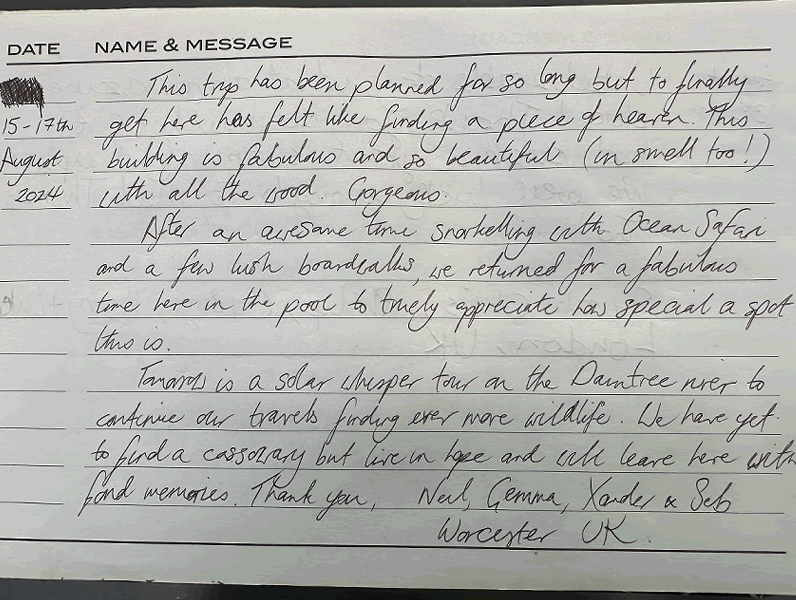 DATE NAME & MESSAGE
This trip has been planned for so long but to finally
15-17th get here has felt like finding a piece of heaven. This
August building is fabulous and so beautiful (in smell too!)
2024 with all the wood. Gorgeous.
After an awesame time snorkelling with Ocean Safari
and a few lush boardwalks, we returned for a fabulous
time here in the pool to truely appreciate how special a spot
this is.
Tomorrow is a solar whisper tour on the Daintree river to
continue our travels finding ever more wildlife. We have yet
to find a cassowary but live in hope and will leave here with
fond memories. Thank you, Neil, Gemma, Xander & Seb
Worcester UK.